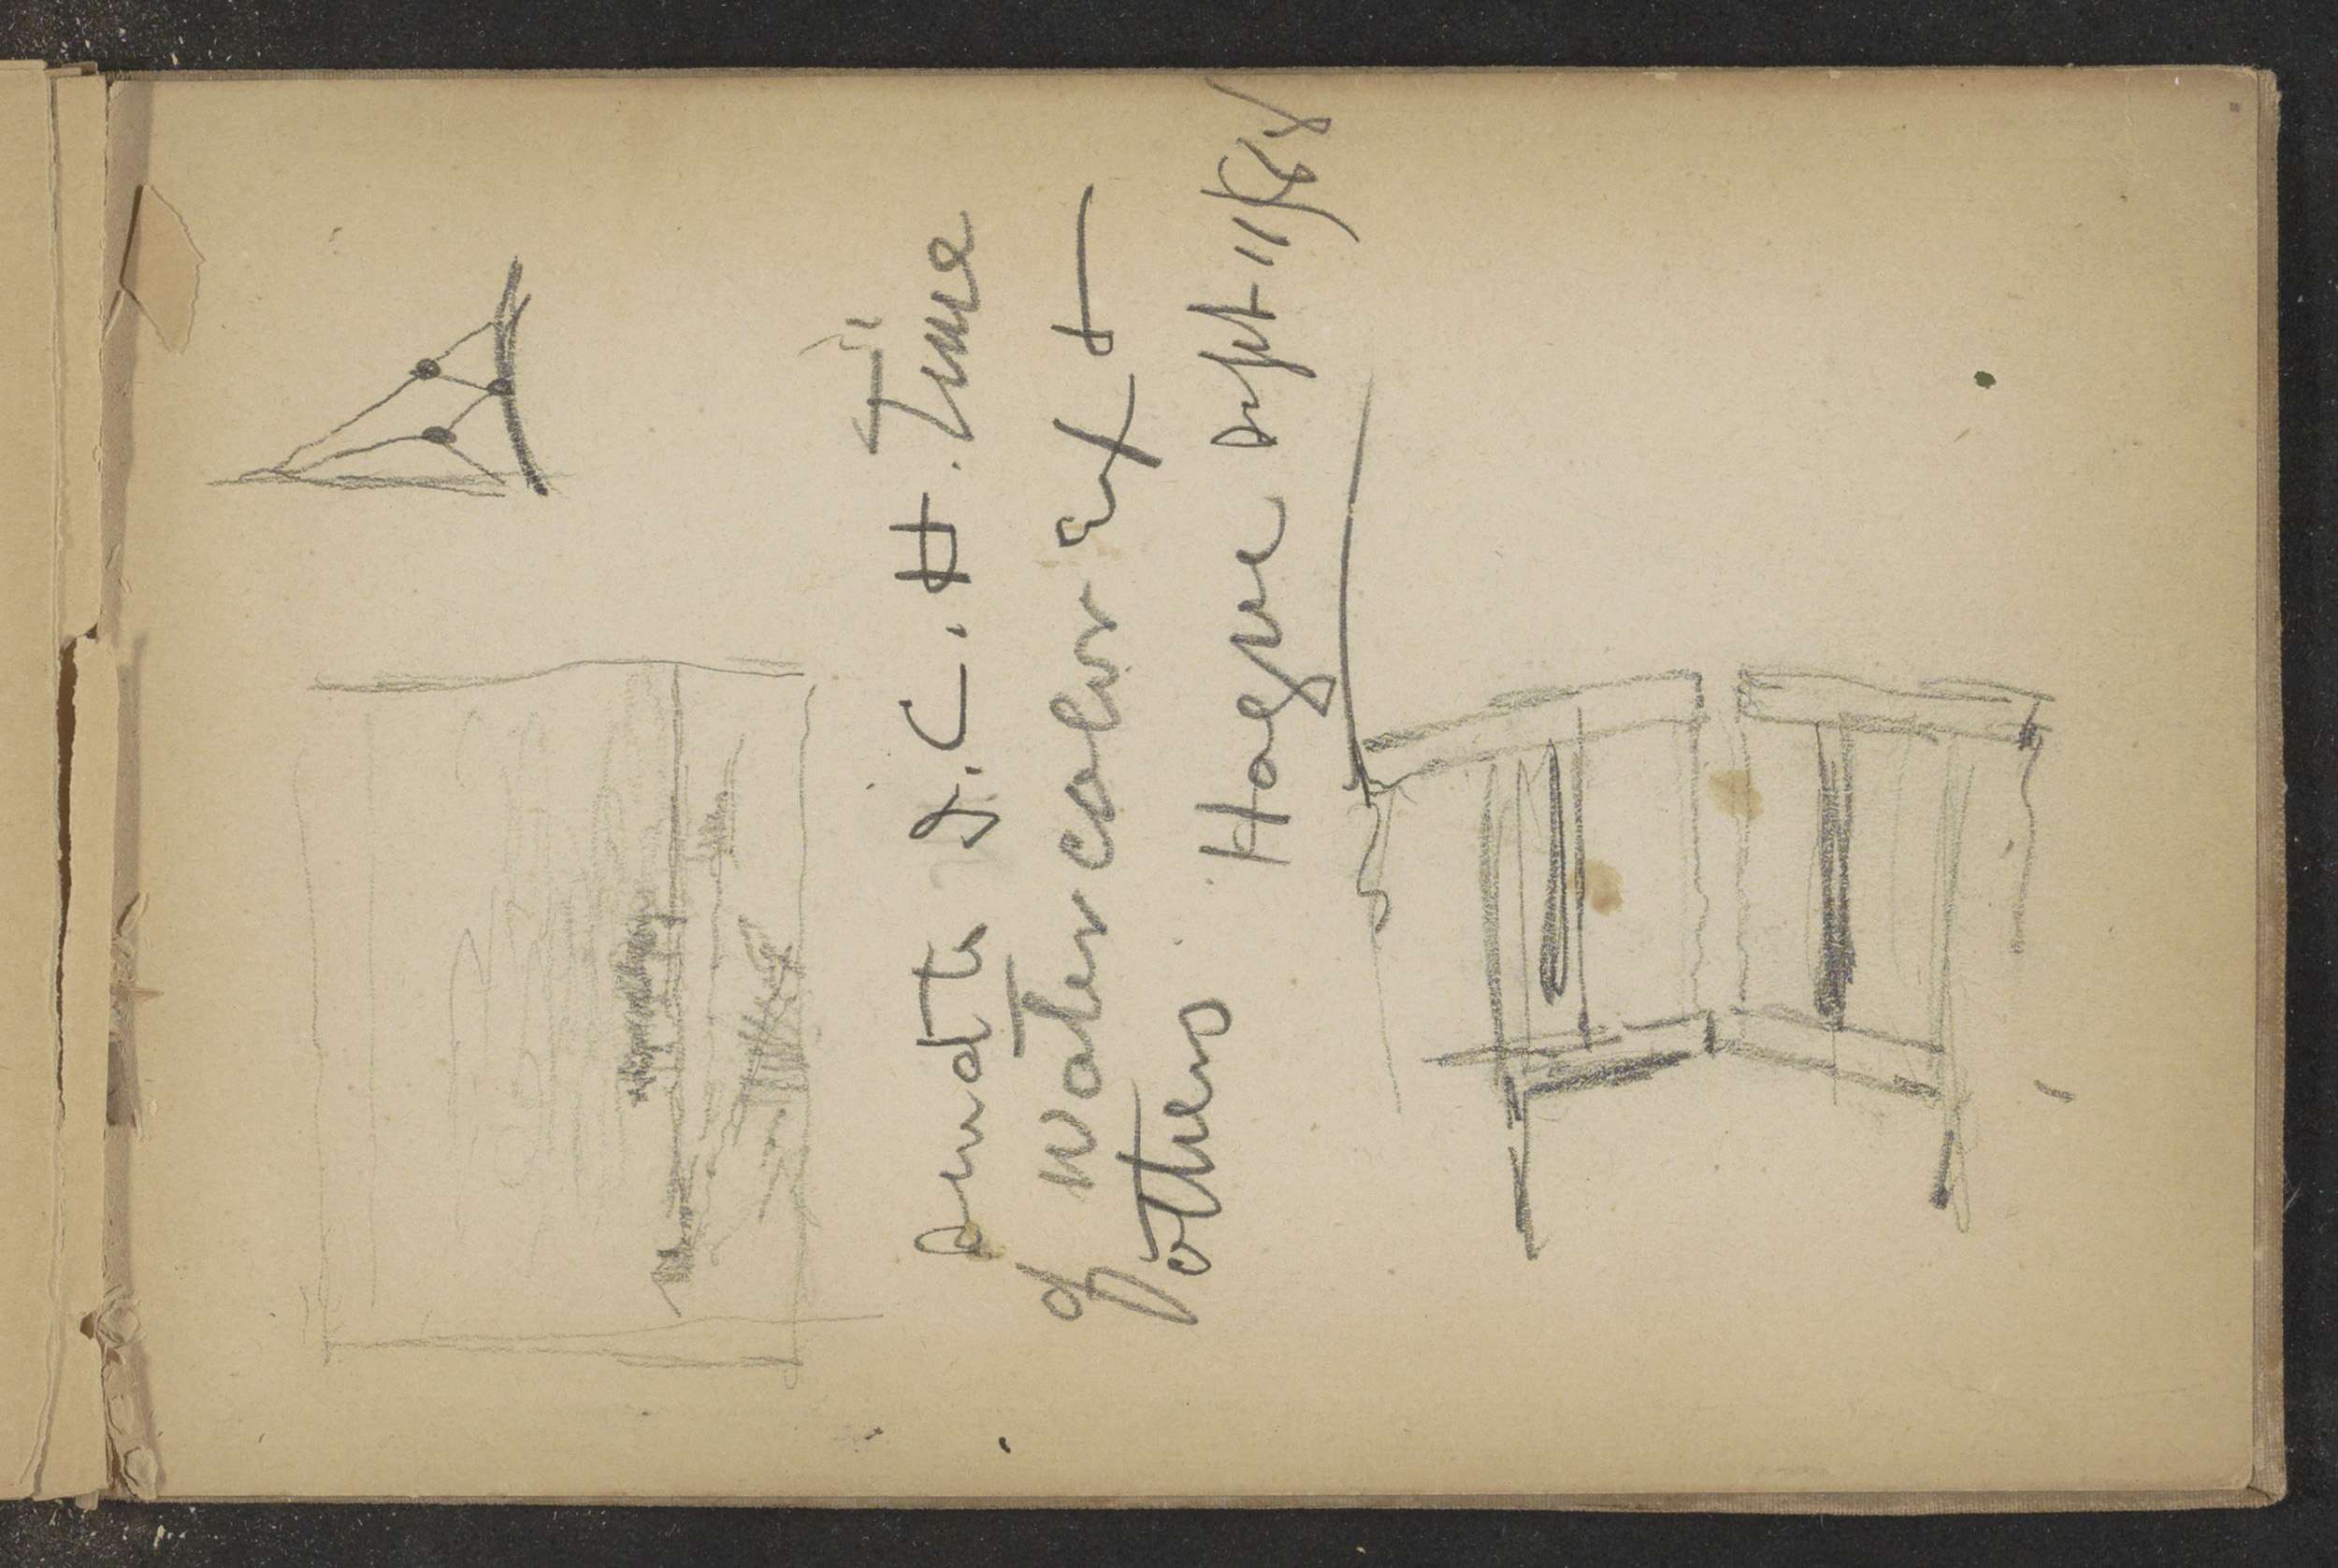 Send to F. C. H. Time
of Water color ex +
others. Hague Sept 11